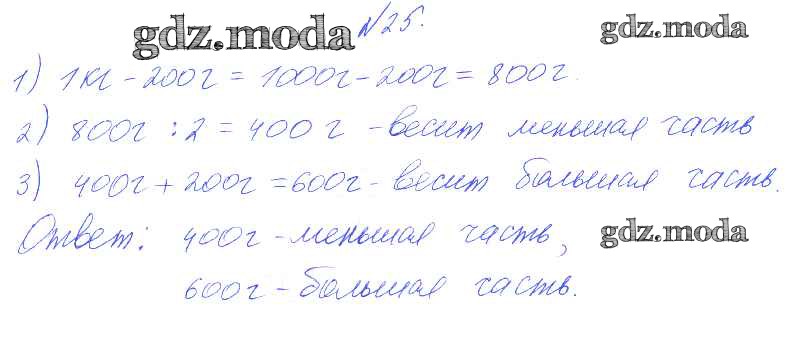 gdz.moda №25. gdz.moda
1) 1кг - 200г = 1000г - 200г = 800г.
2) 800г : 2 = 400 г - весит меньшая часть
3) 400г + 200г = 600г - весит большая часть.
Ответ: 400г - меньшая часть, gdz.moda
600г - большая часть.